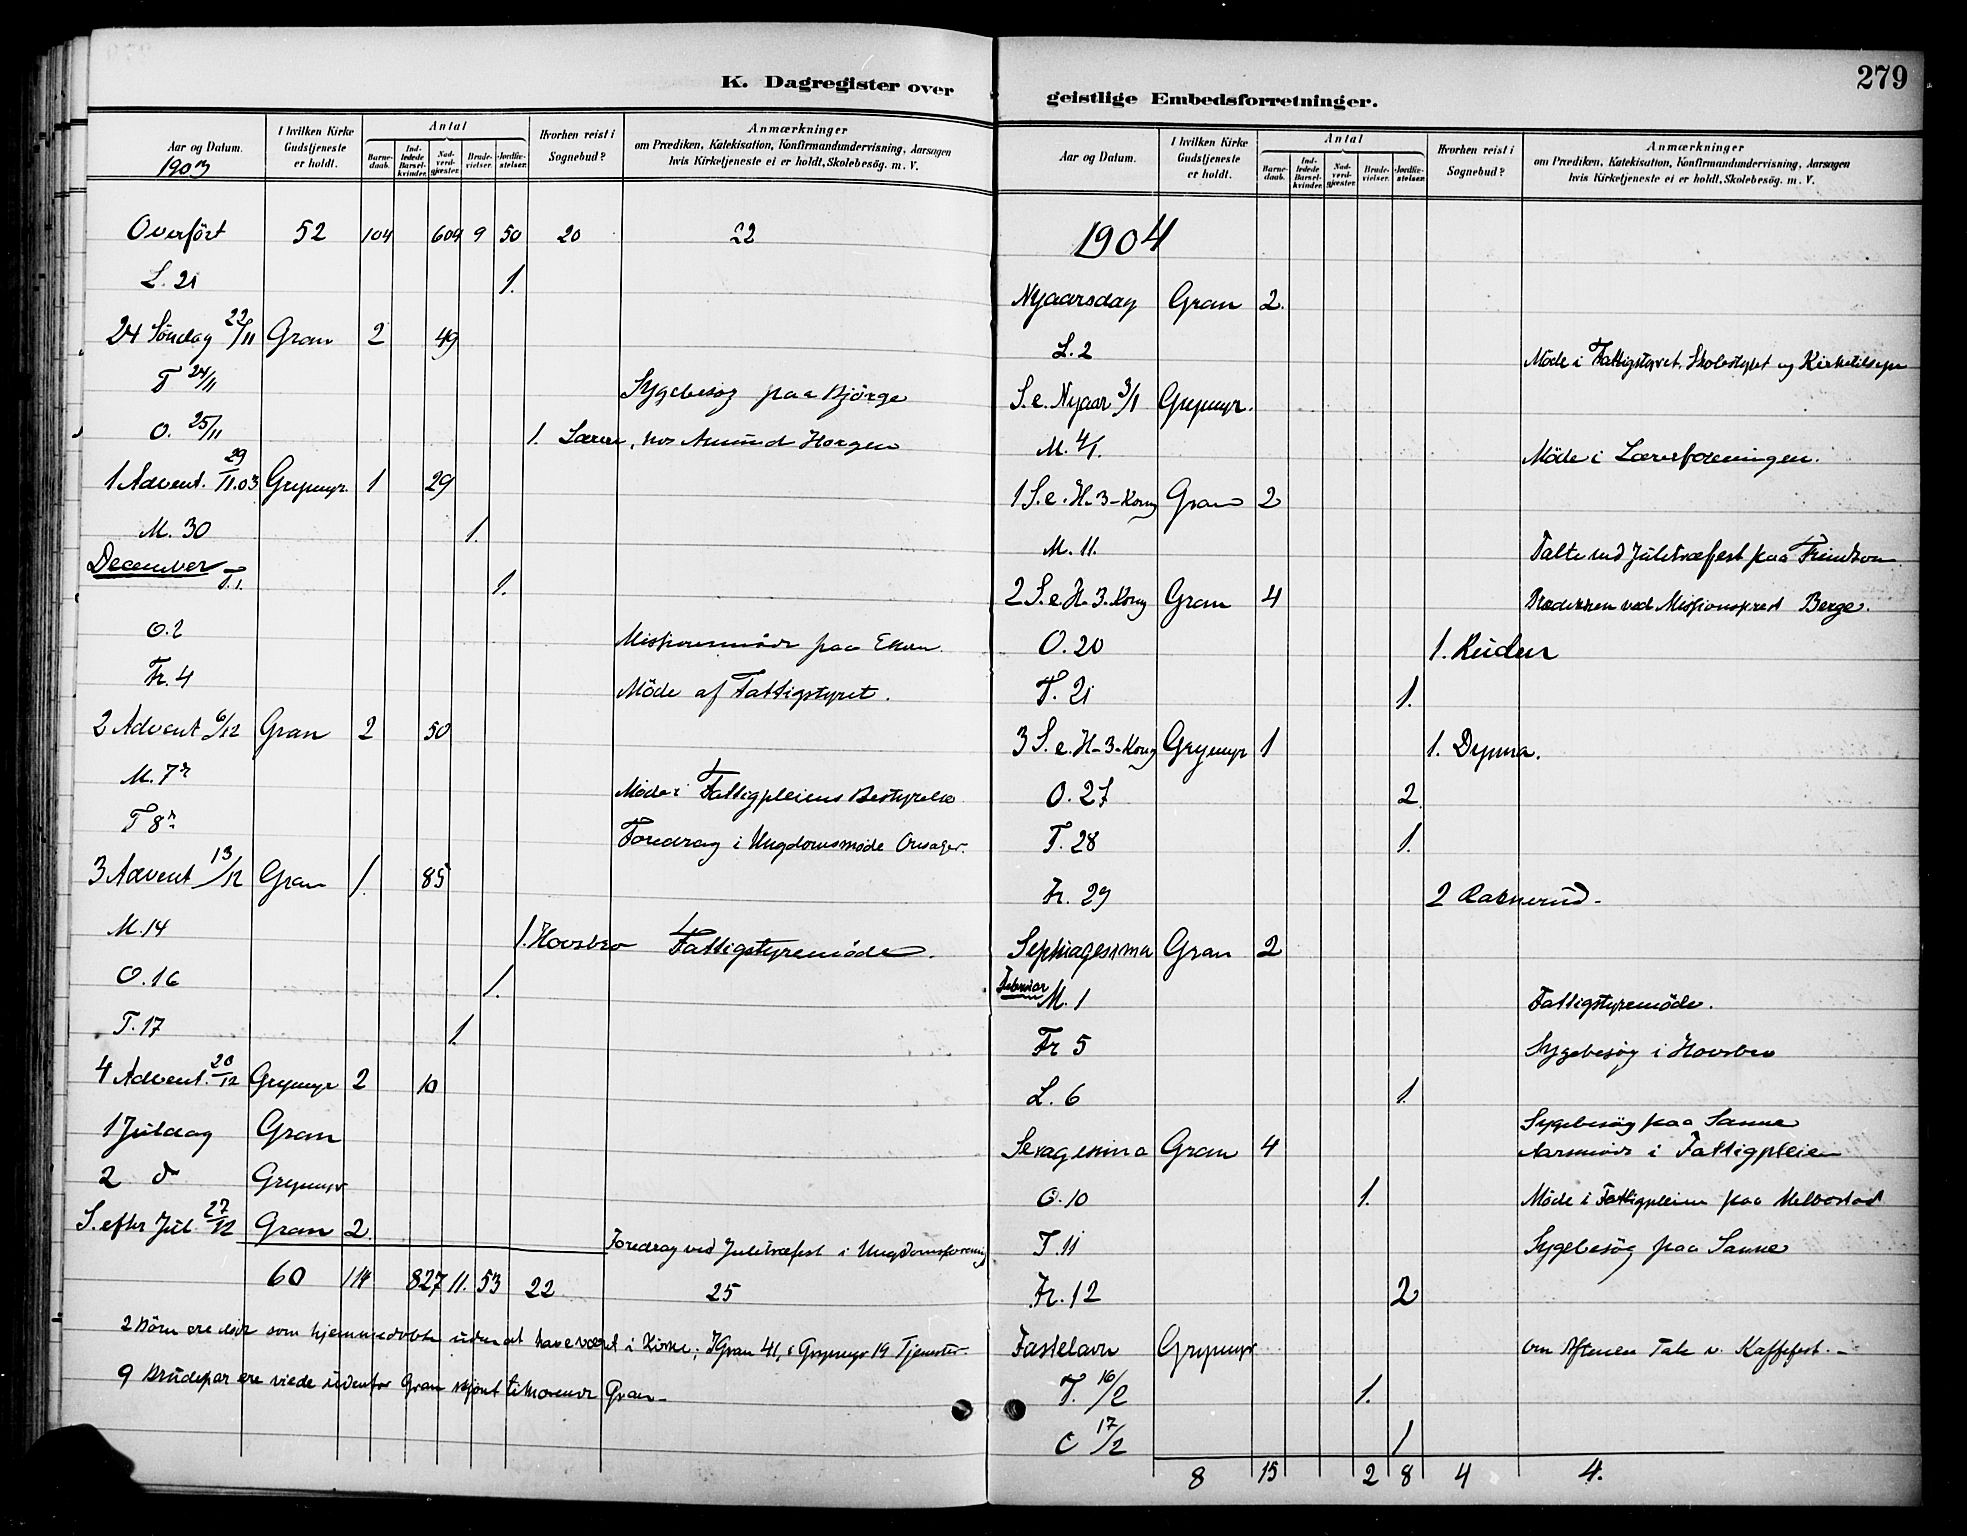 K. Dagregister over
Aar og Datum. I hvilken Kirke Gudstjeneste er holdt. Antal Barnedaab. Indledede Barselkvinder. Nadverdgjæster. Brudevielser. Jordfæstelser. Hvorhen reist i Sognebud? Anmærkninger om Prædiken, Katekisation, Konfirmandundervisning, Aarsagen hvis Kirketjeneste ei er holdt, Skolebesög. m. V.
1903
Overfört 52 104 609 9 50 20 22
L. 21 1.
24 Söndag 22/11 Gran 2 49
T 24/11 Sygebesög paa Björge
O. 25/11 1. Lærer, hos Amund Horgen
1 Advent. 29/11.03 Grymyr. 1 29
M. 30 1.
December T. 1. 1.
O. 2 Missionsmöde paa
Fr. 4 Möde af Fattigstyret.
2 Advent 6/12 Gran 2 50
M. 7 Möde i Fattigpleiens Bestyrelse
T 8 Foredrag i Ungdomsmöde
3 Advent 13/12 Gran 1. 85
M. 14 1. Hovsbro Fattigstyremöde.
O. 16 1.
T. 17 1.
4 Advent. 20/12 Grymyr 2 10
1 Juledag Gran
2 do Grymyr
S. efter Jul. 27/12 Gran 2. Foredrag ved Juletræfest i Ungdomsforening
60 114 827 11. 53 22 25
2 Börn ere döde som hjemmedöbte uden at have været i Kirke; I Gran 41, i Grymyr 19 Tjenester
9 Brudepar ere viede udenfor Gran skjönt tilhörende Gran
279
geistlige Embedsforretninger.
Aar og Datum. I hvilken Kirke Gudstjeneste er holdt. Antal Barnedaab. Indledede Barselkvinder. Nadverdgjæster. Brudevielser. Jordfæstelser. Hvorhen reist i Sognebud? Anmærkninger om Prædiken, Katekisation, Konfirmandundervisning, Aarsagen hvis Kirketjeneste ei er holdt, Skolebesög. m. V.
1904
Nyaarsdag Gran 2.
L. 2 Möde i Fattigstyret, Skolestyret og Kirketilsyn
S. e. Nyaar 3/1 Grymyr.
M. 4/1. Möde i Lærerforeningen.
1 S. e. H. 3-Kong Gran 2
M. 11. Talte ved Juletræfest paa
2 S. e. H. 3. Kong Gran 4 Prædiken ved Missionsprest Berge.
O. 20 1. Ruden
T. 21 1.
3 S. e. H-3-Kong Grymyr 1 1. Dynna.
O. 27 2.
T. 28 1.
Fr. 29 2
Septuagesima Gran 2
Februar M. 1 Fattigstyremöde.
Fr 5 Sygebesög i Hovsbro
L. 6 1.
Sygebesög paa Sanne
Sexagesima Gran 4 Aarsmöde i Fattigpleien
O. 10 1. Möde i Fattigpleien paa Melbostad
T. 11 Sygebesög paa Sanne
Fr. 12 2
Fastelavn Grymyr om Aftenen Tale v. Kaffefest.
T. 16/2 1.
O 17/2 1
8 15 2 8 4 4.